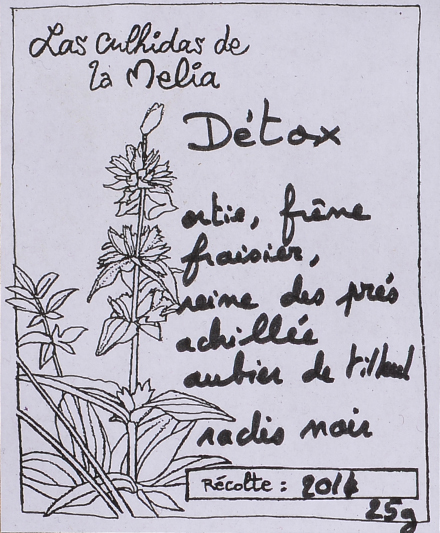 Las culhidas de
la Melia
Détox
ortie, frêne
fraisier,
reine des prés
achillée
aubier de tilleul
radis noir
Récolte : 2016
25g